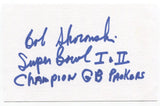 Bob Skoronski
Super Bowl I & II
Champion GB Packers